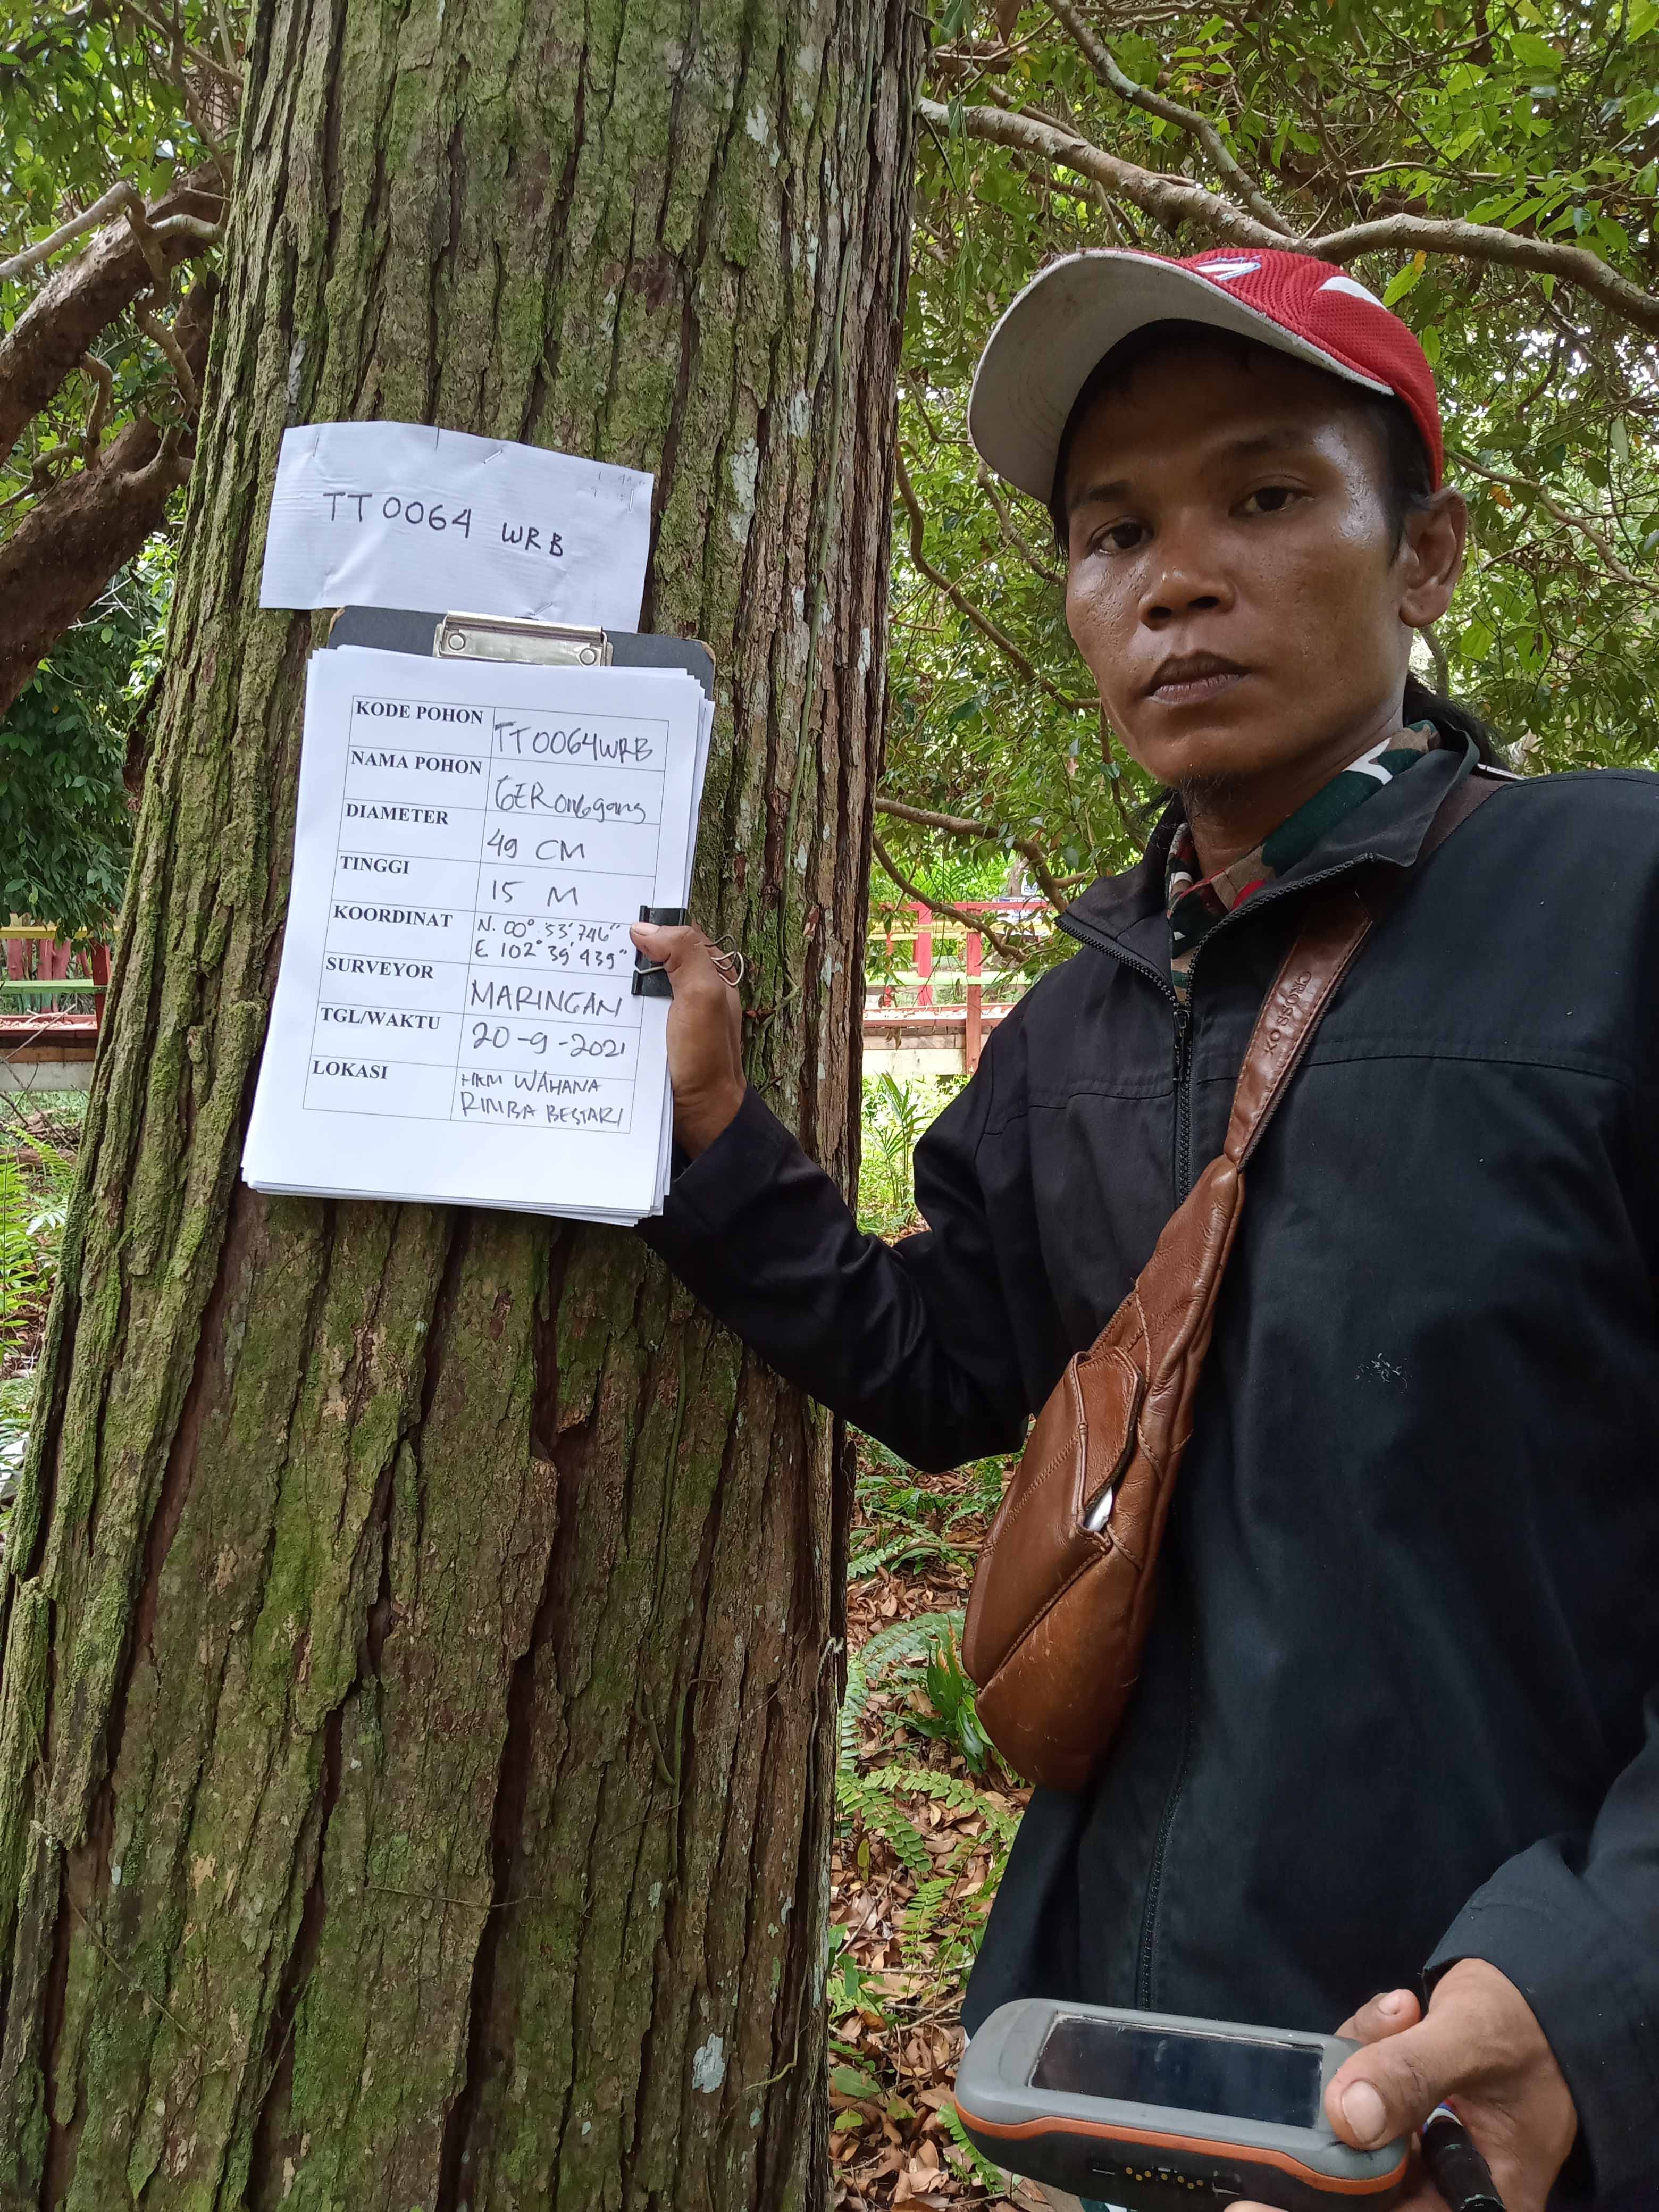 TT0064 WRB
KODE POHON TT0064WRB
NAMA POHON GERonggang
DIAMETER 49 CM
TINGGI 15 M
KOORDINAT N. 00° 53' 746"
E 102° 39' 439"
SURVEYOR MARINGAN
TGL/WAKTU 20-9-2021
LOKASI HKM WAHANA
RIMBA BESTARI
CROSS OX